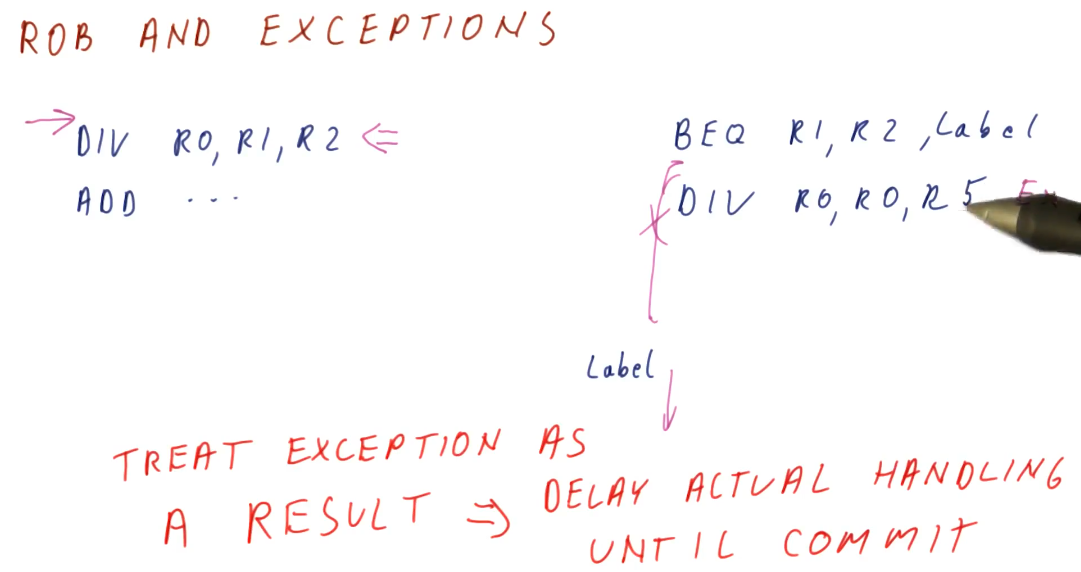 ROB AND EXCEPTIONS
→ DIV R0, R1, R2 ⇐
ADD ...
BEQ R1, R2, Label
DIV R0, R0, R5
Label
TREAT EXCEPTION AS
A RESULT ⇒ DELAY ACTUAL HANDLING
UNTIL COMMIT